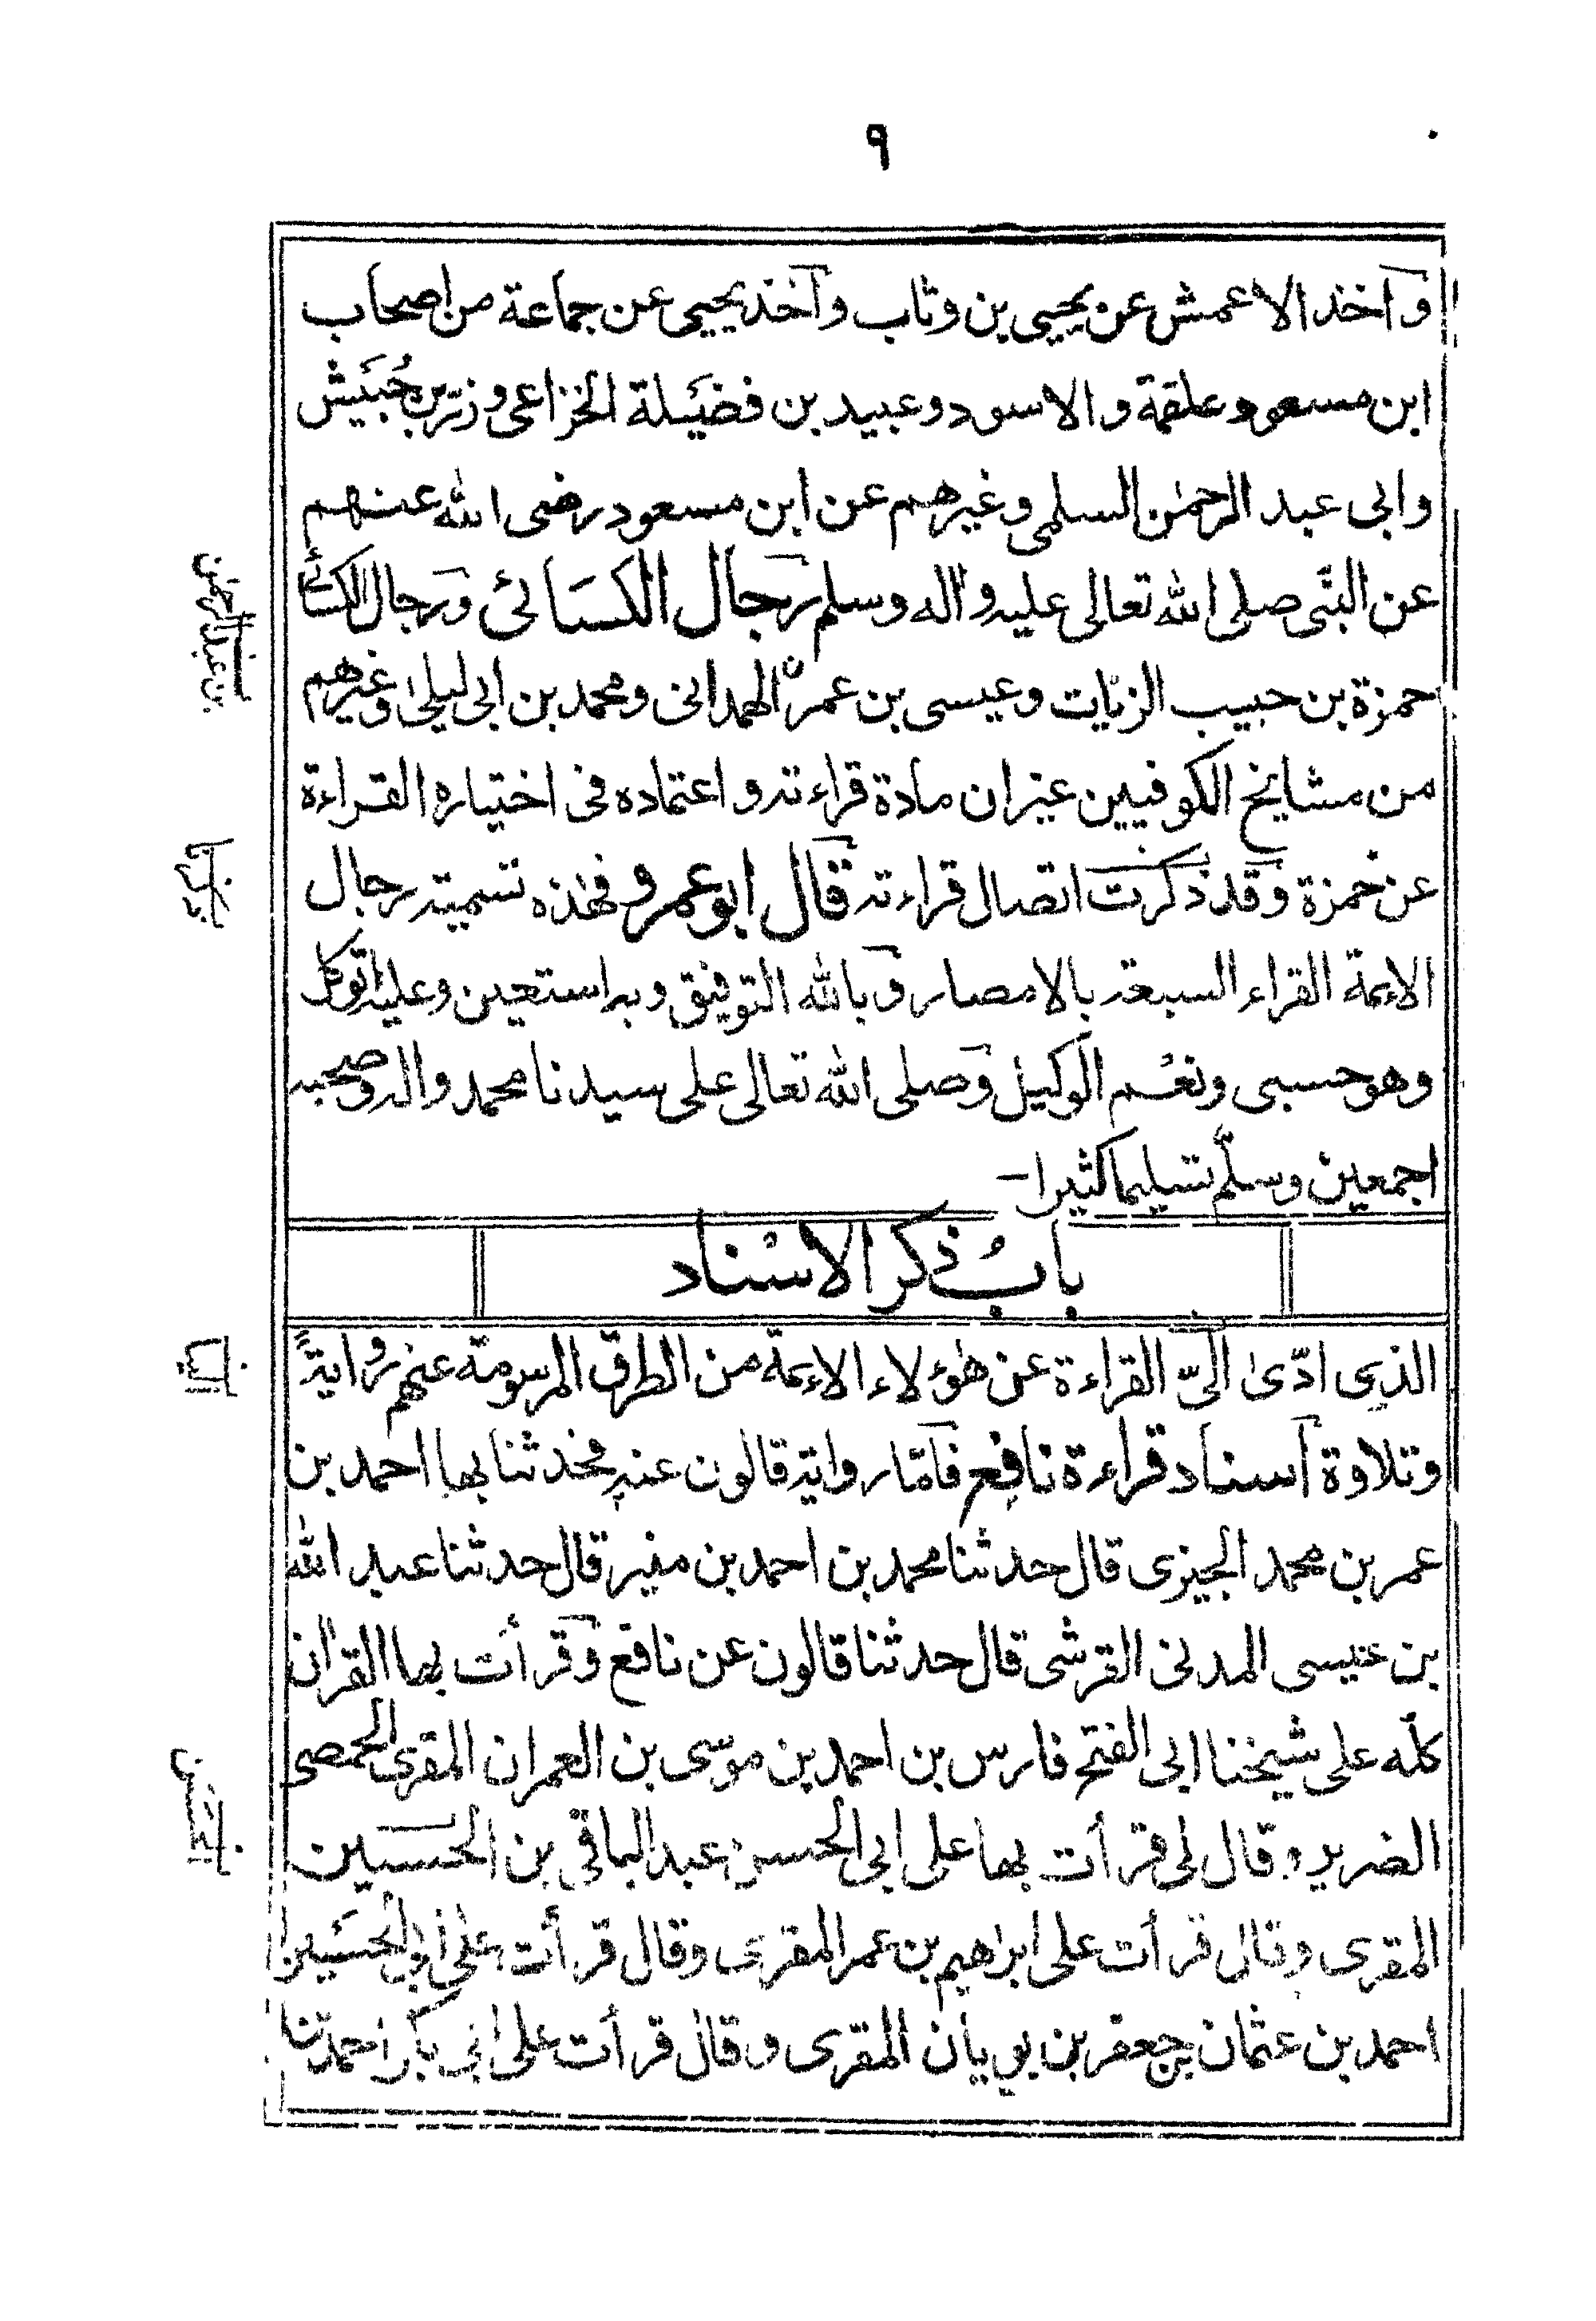 ٩
واخذ الاعمش عن يحيى بن وثاب واخذ يحيى عن جماعة من اصحاب
ابن مسعود علقمة والاسود وعبيد بن فضيلة الخزاعى وزر بن حُبَيش
وابى عبد الرحمٰن السلمى وغيرهم عن ابن مسعود رضى الله عنهم
عن النبى صلى الله تعالى عليه واله وسلم رجال الكسائى ورجال الكسائى
حمزة بن حبيب الزيات وعيسى بن عمر الهمدانى ومحمد بن ابى ليلى وغيرهم
من مشايخ الكوفيين غير ان مادة قراءته واعتماده فى اختياره القراءة
عن حمزة وقد ذكرت اتصال قراءته قال ابو عمرو فهذه تسمية رجال
الائمة القراء السبعة بالامصار وبالله التوفيق وبه استعين وعليه اتوكل
وهو حسبى ونعم الوكيل وصلى الله تعالى على سيدنا محمد واله وصحبه
اجمعين وسلّم تسليما كثيرا-
بابُ ذكر الاسْناد
الذى ادّىٰ الىّ القراءة عن هٰؤلاء الائمة من الطرق المرسومة عنهم روايةً
وتلاوة اسناد قراءة نافع فامّا رواية قالون عنه فحدثنا بها احمد بن
عمر بن محمد الجيزى قال حدثنا محمد بن احمد بن منير قال حدثنا عبد الله
بن عيسى المدنى القرشى قال حدثنا قالون عن نافع وقرأت بها القران
كلّه على شيخنا ابى الفتح فارس بن احمد بن موسى بن العمران المقرى الحمصى
الضرير وقال لى قرأت بها على ابى الحسن عبد الباقى بن الحسين
المقرى وقال قرأت على ابراهيم بن عمر المقرى وقال قرأت على ابى الحسين
احمد بن عثمان بن جعفر بن بويان المقرى وقال قرأت على ابى بكر احمد بن